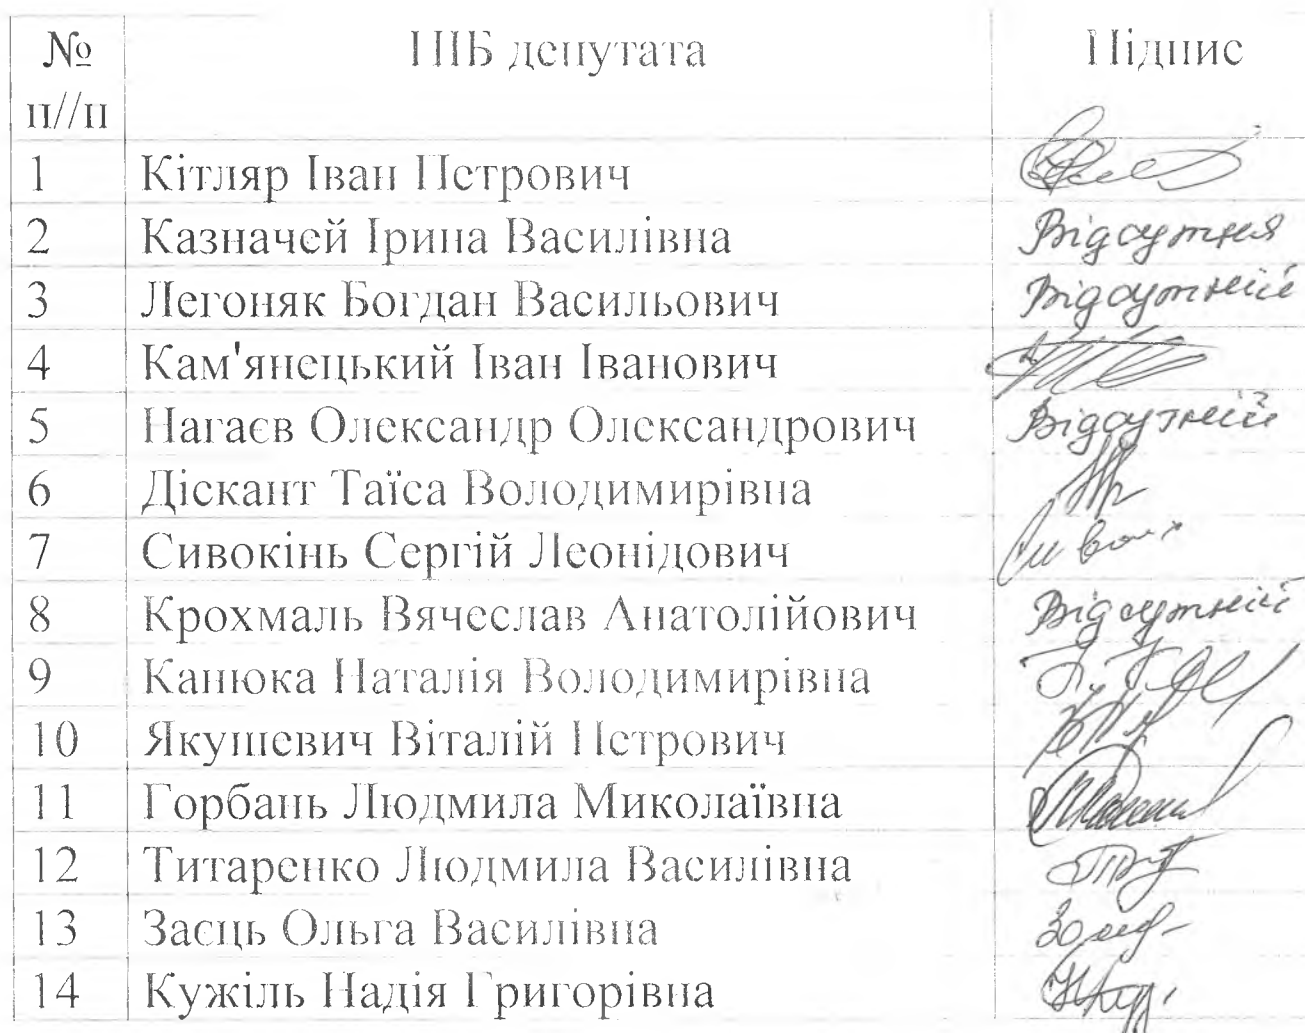 № ПІБ депутата Підпис
п//п
1 Кітляр Іван Петрович
2 Казначей Ірина Василівна Відсутня
3 Легоняк Богдан Васильович Відсутній
4 Кам'янецький Іван Іванович
5 Нагаєв Олександр Олександрович Відсутній
6 Діскант Таїса Володимирівна
7 Сивокінь Сергій Леонідович
8 Крохмаль Вячеслав Анатолійович Відсутній
9 Канюка Наталія Володимирівна
10 Якушевич Віталій Петрович
11 Горбань Людмила Миколаївна
12 Титаренко Людмила Василівна
13 Заєць Ольга Василівна
14 Кужіль Надія Григорівна